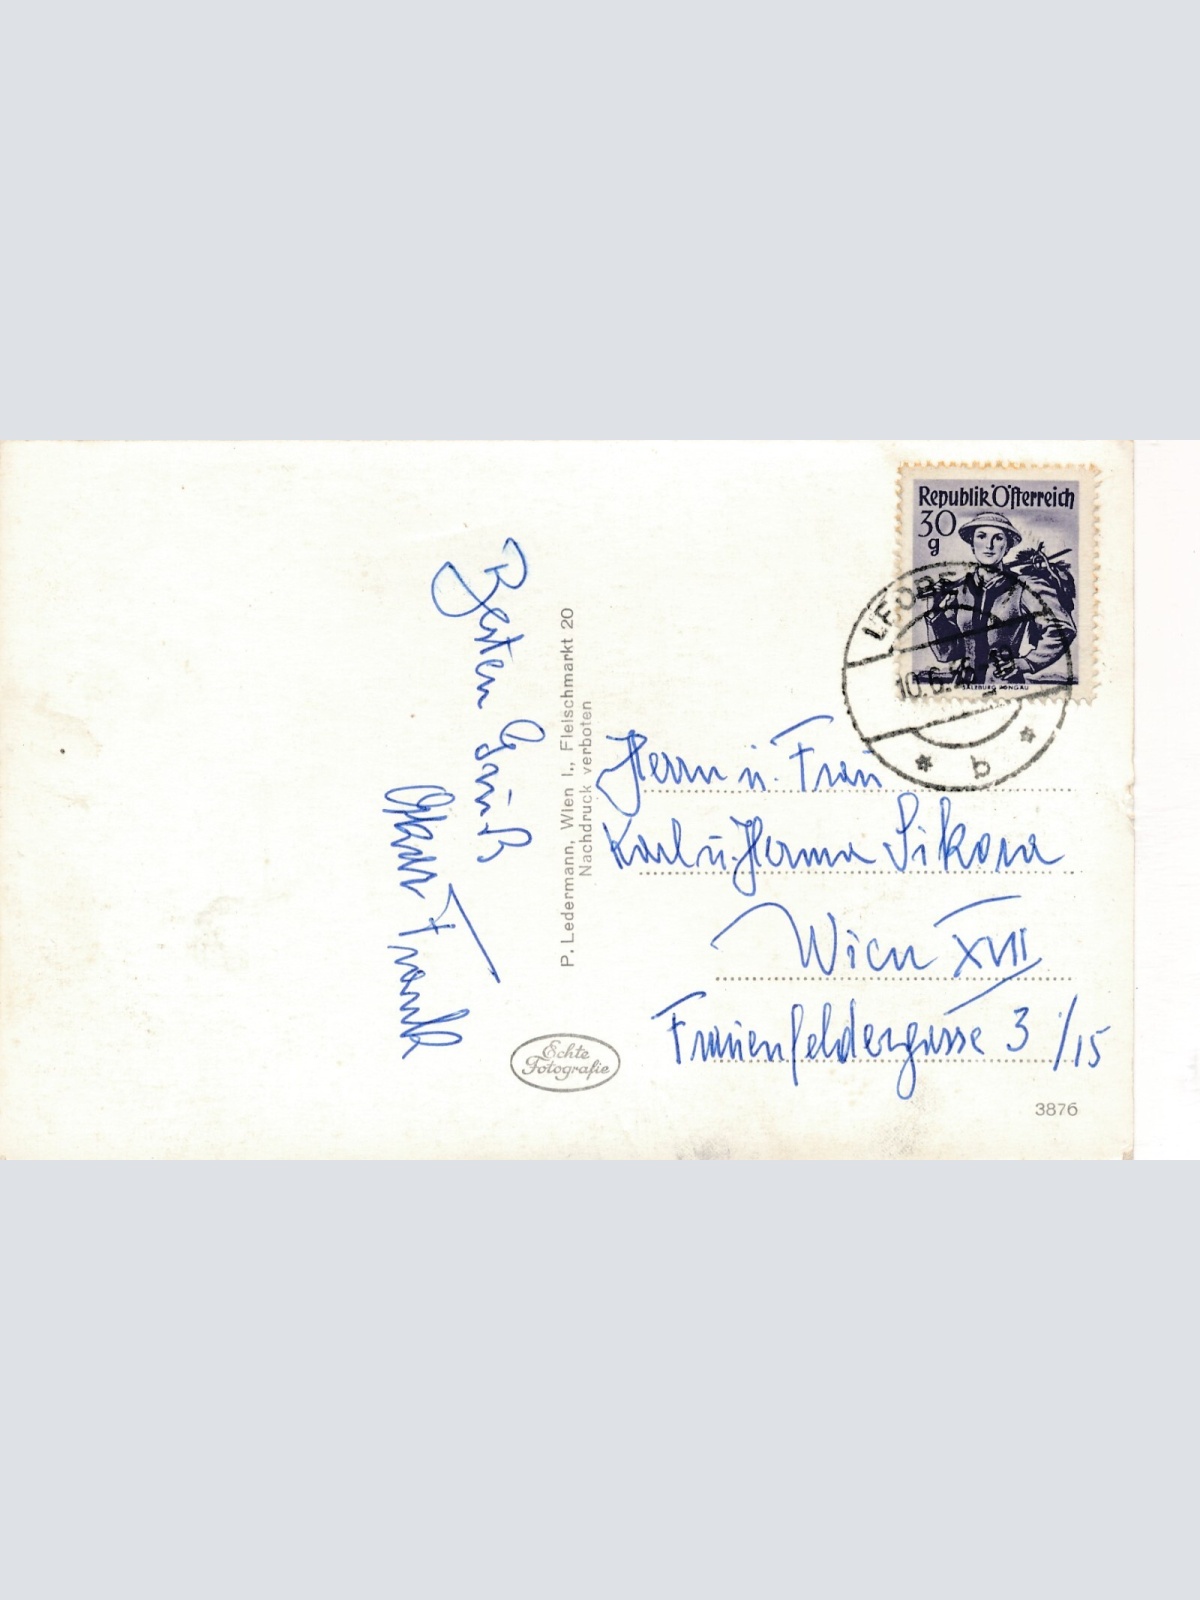 Besten Gruß
Oskar Frank
P. Ledermann, Wien I., Fleischmarkt 20
Nachdruck verboten
Echte
Fotografie
Republik Österreich
30
g
SALZBURG PONGAU
LEOBEN
10.6.
* b *
Herrn u. Frau
Karl u. Herma Sikora
Wien XVII
Frauenfeldergasse 3 /15
3876